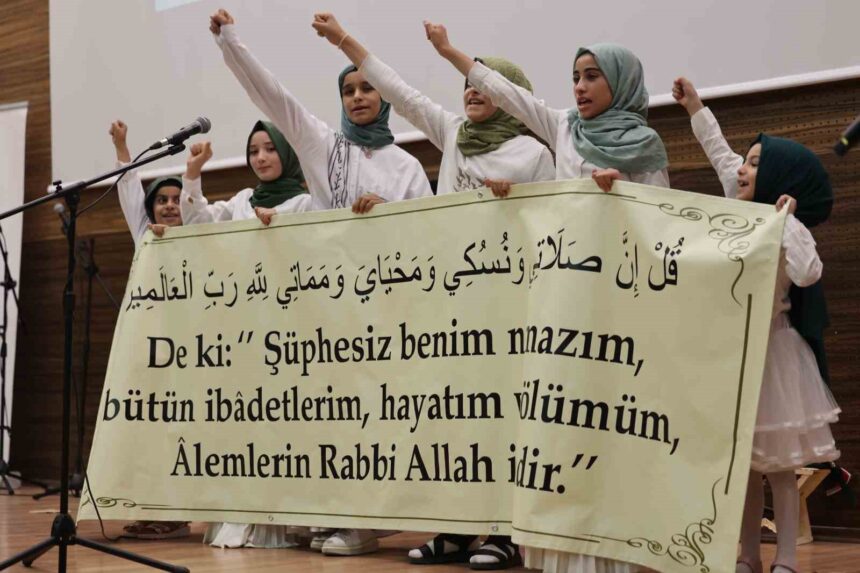 قُلْ إِنَّ صَلَاتِي وَنُسُكِي وَمَحْيَايَ وَمَمَاتِي لِلَّهِ رَبِّ الْعَالَمِينَ
De ki:'' Şüphesiz benim nmazım,
bütün ibâdetlerim, hayatım völümüm,
Âlemlerin Rabbi Allah idir.''